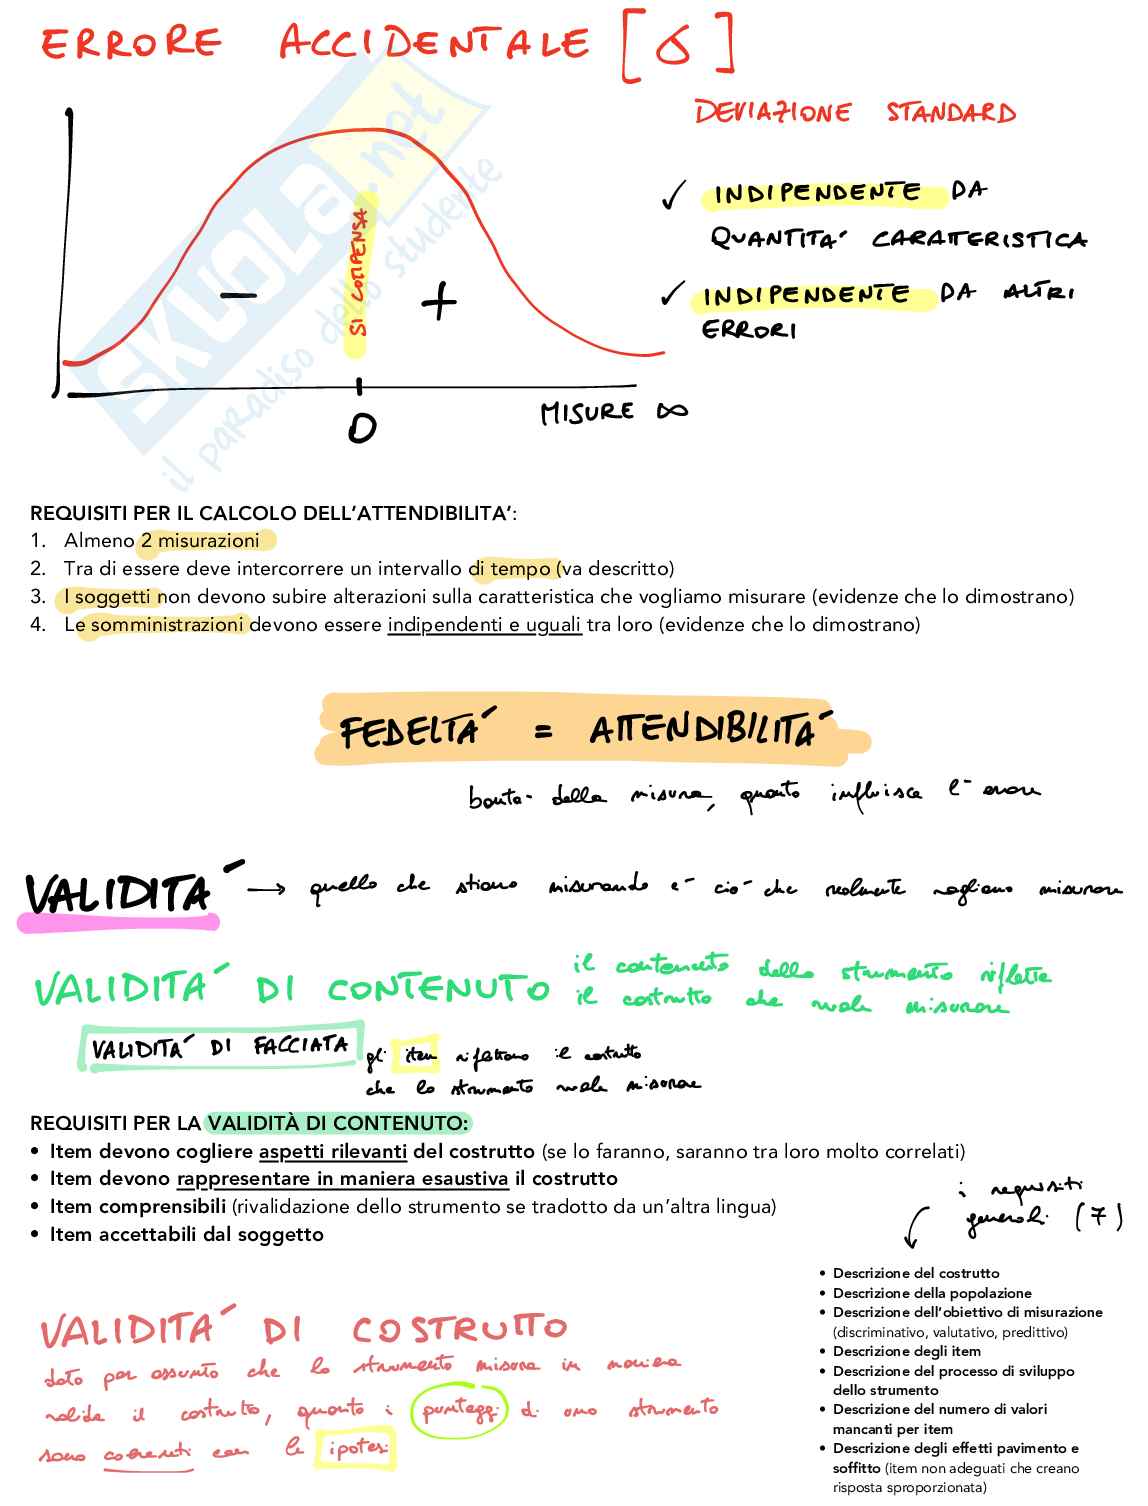 ERRORE ACCIDENTALE [σ]
DEVIAZIONE STANDARD
✓ INDIPENDENTE DA
QUANTITA' CARATTERISTICA
✓ INDIPENDENTE DA ALTRI
ERRORI
SI COMPENSA
- +
0
MISURE ∞
SKUOLA.net
il paradiso dello studente
REQUISITI PER IL CALCOLO DELL'ATTENDIBILITA':
1. Almeno 2 misurazioni
2. Tra di essere deve intercorrere un intervallo di tempo (va descritto)
3. I soggetti non devono subire alterazioni sulla caratteristica che vogliamo misurare (evidenze che lo dimostrano)
4. Le somministrazioni devono essere indipendenti e uguali tra loro (evidenze che lo dimostrano)
FEDELTA' = ATTENDIBILITA'
bonta' della misura, quanto influisce l'errore
VALIDITA' → quello che stiamo misurando e' cio' che realmente vogliamo misurare
VALIDITA' DI CONTENUTO
il contenuto dello strumento riflette
il costrutto che vuole misurare
VALIDITA' DI FACCIATA
gli item riflettono il costrutto
che lo strumento vuole misurare
REQUISITI PER LA VALIDITÀ DI CONTENUTO:
• Item devono cogliere aspetti rilevanti del costrutto (se lo faranno, saranno tra loro molto correlati)
• Item devono rappresentare in maniera esaustiva il costrutto
• Item comprensibili (rivalidazione dello strumento se tradotto da un'altra lingua)
• Item accettabili dal soggetto
i requisiti
generali (7)
• Descrizione del costrutto
• Descrizione della popolazione
• Descrizione dell'obiettivo di misurazione
(discriminativo, valutativo, predittivo)
• Descrizione degli item
• Descrizione del processo di sviluppo
dello strumento
• Descrizione del numero di valori
mancanti per item
• Descrizione degli effetti pavimento e
soffitto (item non adeguati che creano
risposta sproporzionata)
VALIDITA' DI COSTRUTTO
dato per assunto che lo strumento misura in maniera
valida il costrutto, quanto i punteggi di uno strumento
sono coerenti con le ipotesi